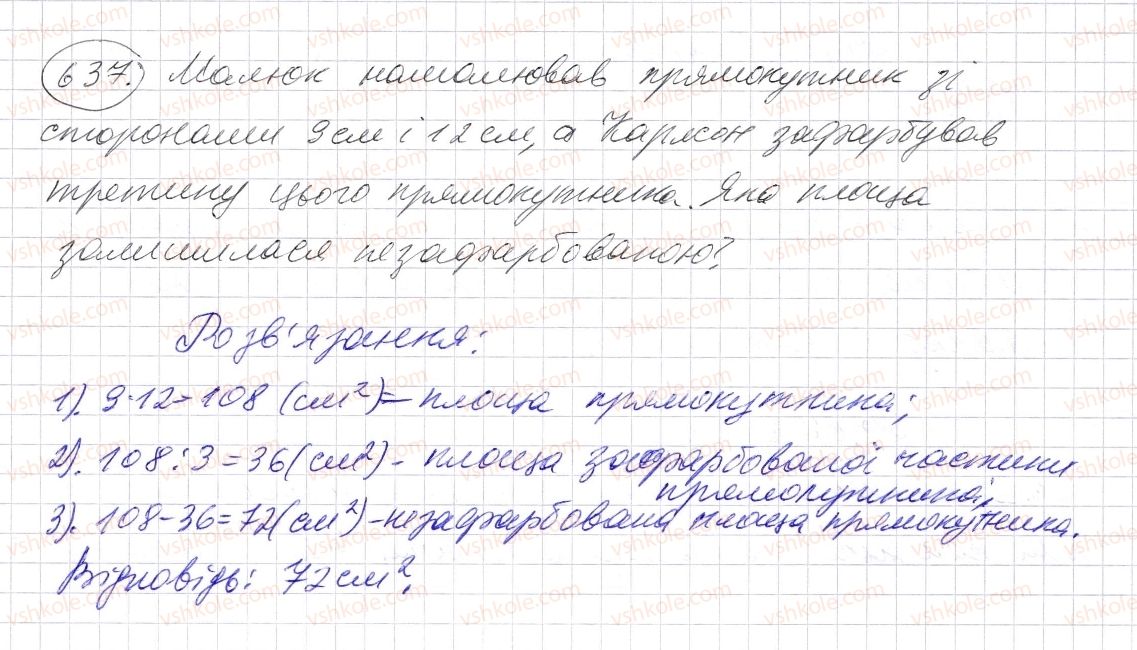 637. Малюк намалював прямокутник зі
сторонами 9 см і 12 см, а Карлсон зафарбував
третину цього прямокутника. Яка площа
залишилася незафарбованою?
Розв'язання:
1). 9·12=108 (см²)– площа прямокутника;
2). 108:3=36(см²)– площа зафарбованої частини
прямокутника;
3). 108-36=72(см²)–незафарбована площа прямокутника.
Відповідь: 72 см².